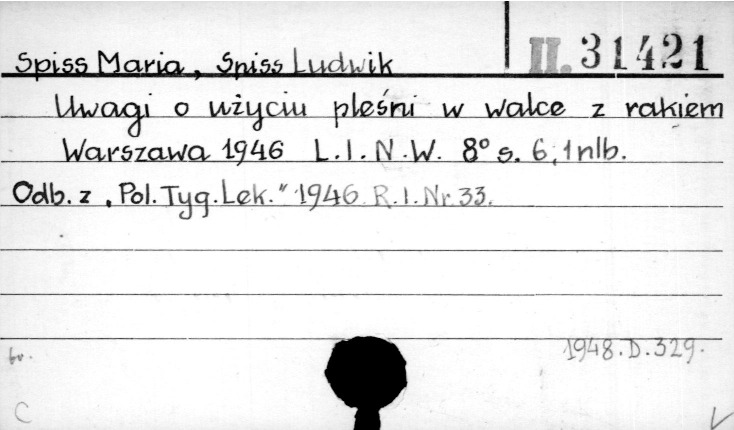 Spiss Maria, Spiss Ludwik II. 31421
Uwagi o użyciu pleśni w walce z rakiem
Warszawa 1946 L.I.N.W. 8° s. 6, 1 nlb.
Odb. z „Pol. Tyg. Lek." 1946 R.I. Nr. 33.
1948.D.329.
C